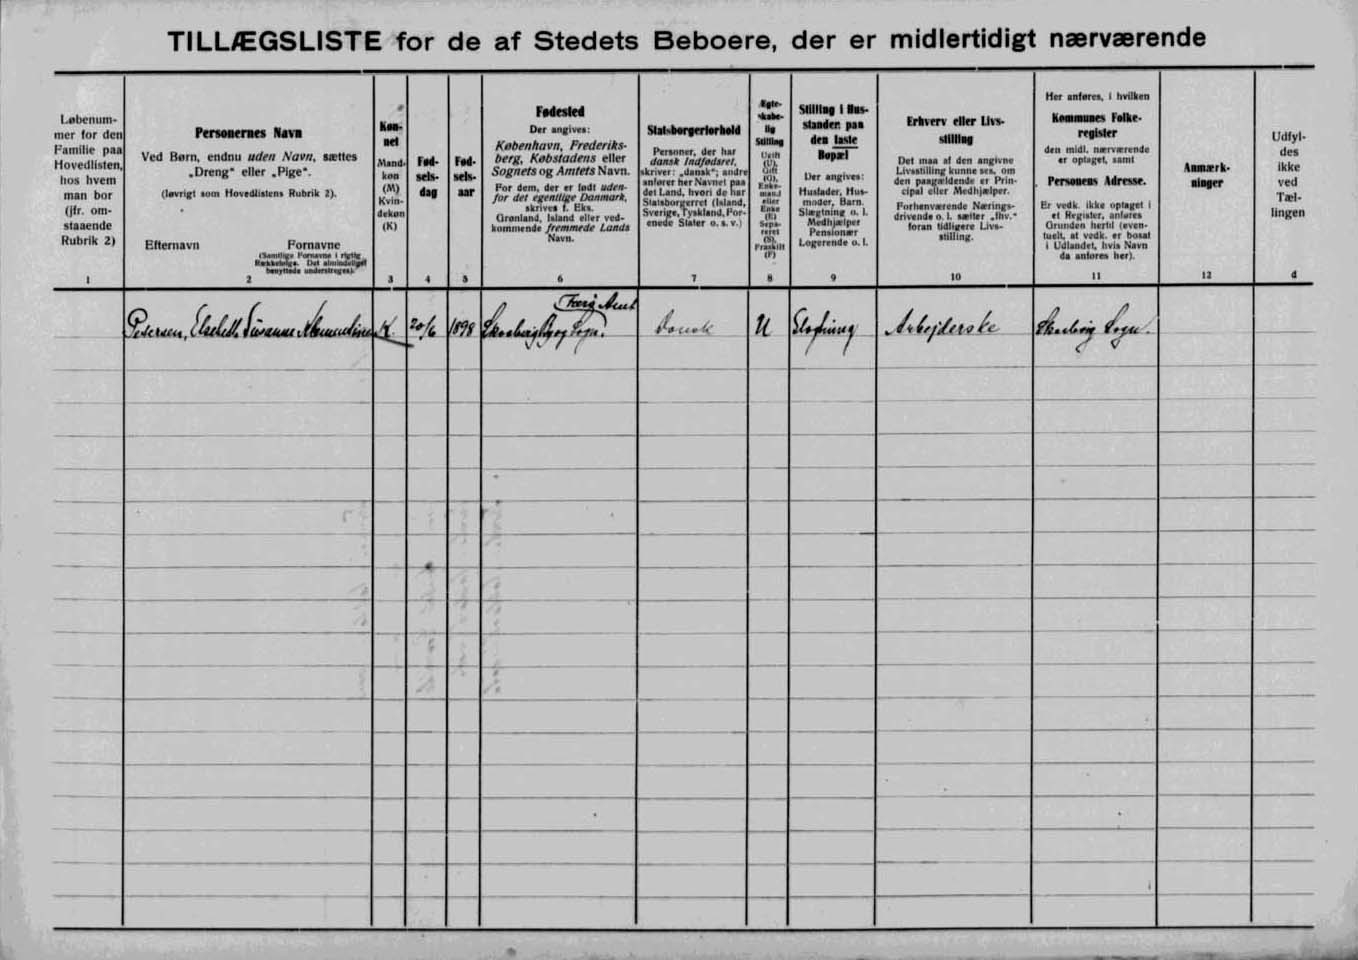 TILLÆGSLISTE for de af Stedets Beboere, der er midlertidigt nærværende
Løbenum-
mer for den
Familie paa
Hovedlisten,
hos hvem
man bor
(jfr. om-
staaende
Rubrik 2)
1
Personernes Navn
Ved Børn, endnu uden Navn, sættes
„Dreng“ eller „Pige“.
(Iøvrigt som Hovedlistens Rubrik 2).
Efternavn Fornavne
(Samtlige Fornavne i rigtig
Rækkefølge. Det almindeligst
benyttede understreges).
2
Køn-
net
Mand-
køn
(M)
Kvin-
dekøn
(K)
3
Fød-
sels-
dag
4
Fød-
sels-
aar
5
Fødested
Der angives:
København, Frederiks-
berg, Købstadens eller
Sognets og Amtets Navn.
For dem, der er født uden-
for det egentlige Danmark,
skrives f. Eks.
Grønland, Island eller ved-
kommende fremmede Lands
Navn.
6
Statsborgerforhold
Personer, der har
dansk Indfødsret,
skriver: „dansk“; andre
anfører her Navnet paa
det Land, hvori de har
Statsborgerret (Island,
Sverige, Tyskland, For-
enede Stater o. s. v.)
7
Ægte-
skabe-
lig
Stilling
Ugift
(U),
Gift
(G),
Enke-
mand
eller
Enke
(E)
Sepa-
reret
(S),
Fraskilt
(F)
8
Stilling i Hus-
standen paa
den faste
Bopæl
Der angives:
Husfader, Hus-
moder, Barn.
Slægtning o. l.
Medhjælper
Pensionær
Logerende o. l.
9
Erhverv eller Livs-
stilling
Det maa af den angivne
Livsstilling kunne ses, om
den paagældende er Prin-
cipal eller Medhjælper.
Forhenværende Nærings-
drivende o. l. sætter „fhv.“
foran tidligere Livs-
stilling.
10
Her anføres, i hvilken
Kommunes Folke-
register
den midl. nærværende
er optaget, samt
Personens Adresse.
Er vedk. ikke optaget i
et Register, anføres
Grunden hertil (even-
tuelt, at vedk. er bosat
i Udlandet, hvis Navn
da anføres her).
11
Anmærk-
ninger
12
Udfyl-
des
ikke
ved
Tæl-
lingen
d
Amt
Petersen, Susanne K. 20/6 1898 Sogn. Dansk U Arbejderske Sogn.